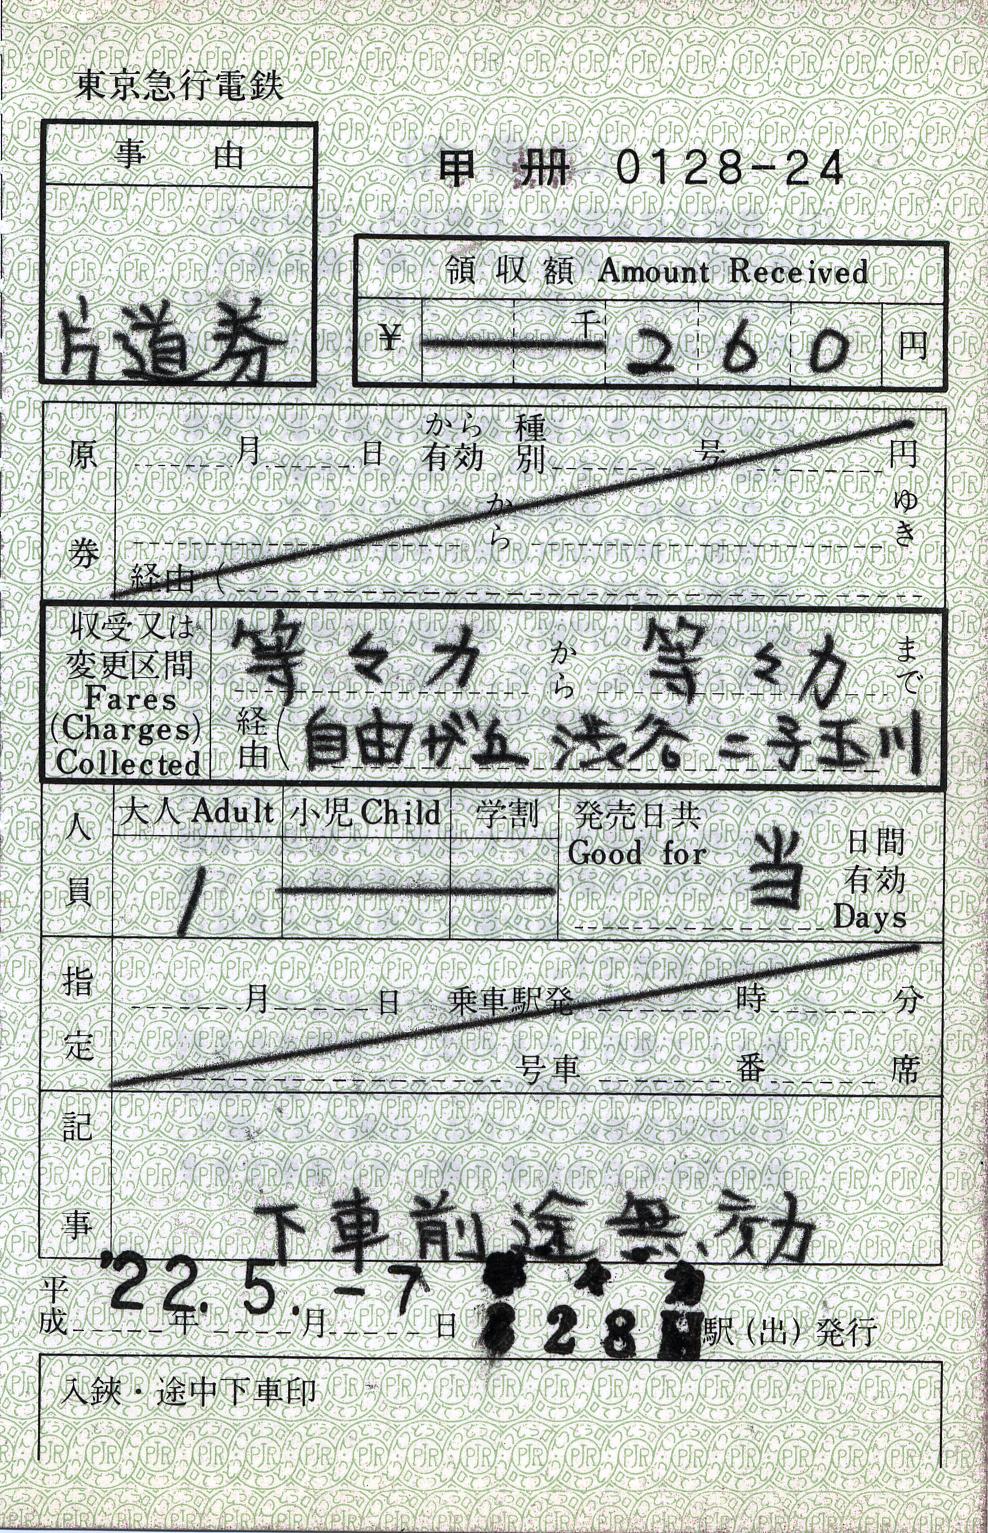 東京急行電鉄
事 由
片道券
甲 册 0128-24
領収額 Amount Received
¥ 千 2 6 0 円
原券
月 日 から有効 種別 号 円
から ゆき
経由 (
収受又は変更区間 Fares (Charges) Collected
等々力 から 等々力 まで
経由 ( 自由が丘 渋谷 二子玉川
人員
大人 Adult 小児 Child 学割
1
発売日共 Good for 当 日間有効 Days
指定
月 日 乗車駅発 時 分
号車 番 席
記事
下車前途無効
平成 '22. 5. -7 年 月 日 328 駅(出)発行
入鋏・途中下車印